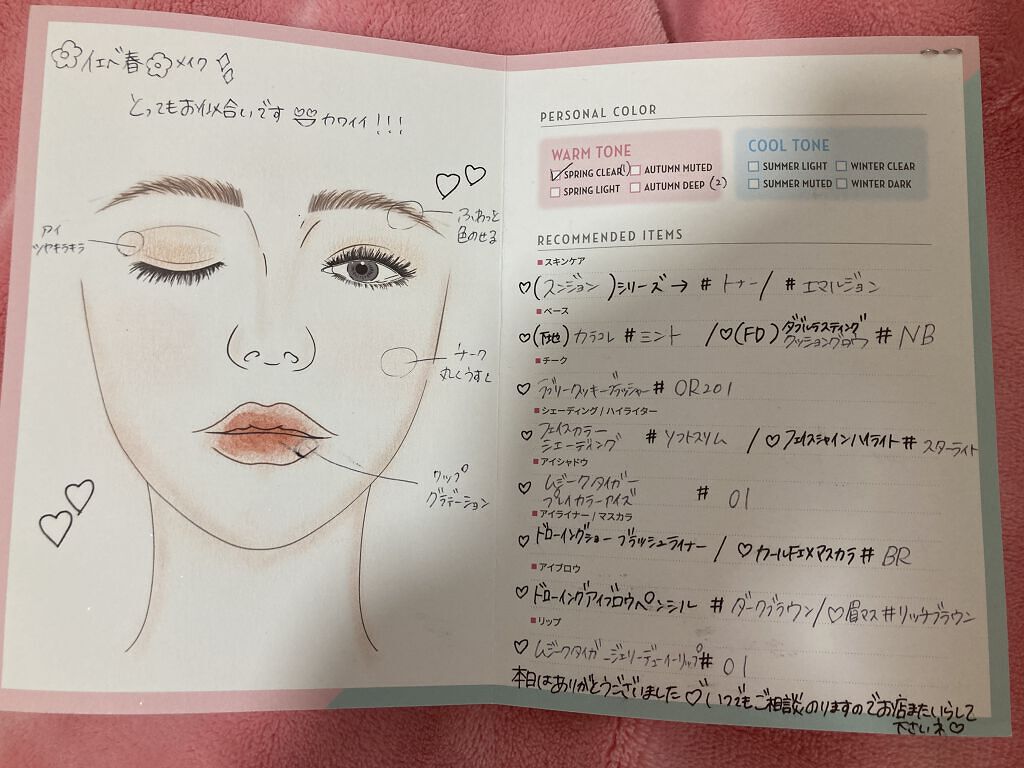 イエベ春メイク
とってもお似合いです カワイイ!!!
アイ
ツヤキラキラ
ふわっと
色のせる
チーク
丸くうすく
リップ
グラデーション
PERSONAL COLOR
WARM TONE
SPRING CLEAR(1) AUTUMN MUTED
SPRING LIGHT AUTUMN DEEP (2)
COOL TONE
SUMMER LIGHT WINTER CLEAR
SUMMER MUTED WINTER DARK
RECOMMENDED ITEMS
■スキンケア
♡(スンジョン)シリーズ→ #トナー/ #エマルジョン
■ベース
♡(下地)カラコレ #ミント /♡(FD)ダブルラスティング
クッショングロウ #NB
■チーク
♡ラブリークッキーブラッシャー# OR201
■シェーディング/ハイライター
♡フェイスカラー
シェーディング #ソフトスリム /♡フェイスシャインハイライト#スターライト
■アイシャドウ
♡ムジークタイガー
プレイカラーアイズ # 01
■アイライナー/マスカラ
♡ドローイングショーブラッシュライナー/♡カールFixマスカラ# BR
■アイブロウ
♡ドローイングアイブロウペンシル #ダークブラウン/♡眉マス#リッチブラウン
■リップ
♡ムジークタイガージェリーデューイーリップ# 01
本日はありがとうございました♡いつでもご相談のりますのでお店またいらして
下さいネ♡